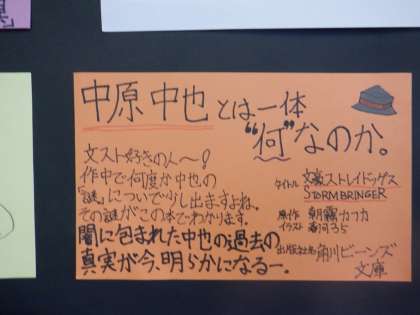 中原中也とは一体
"何"なのか。
文スト好きの人〜!
作中で何度か中也の
「謎」について少し出ますよね。
その謎がこの本でわかります。
闇に包まれた中也の過去の
真実が今、明らかになるー。
タイトル 文豪ストレイドッグス
STORMBRINGER
原作 朝霧カフカ
イラスト 春河35
出版社名 角川ビーンズ
文庫